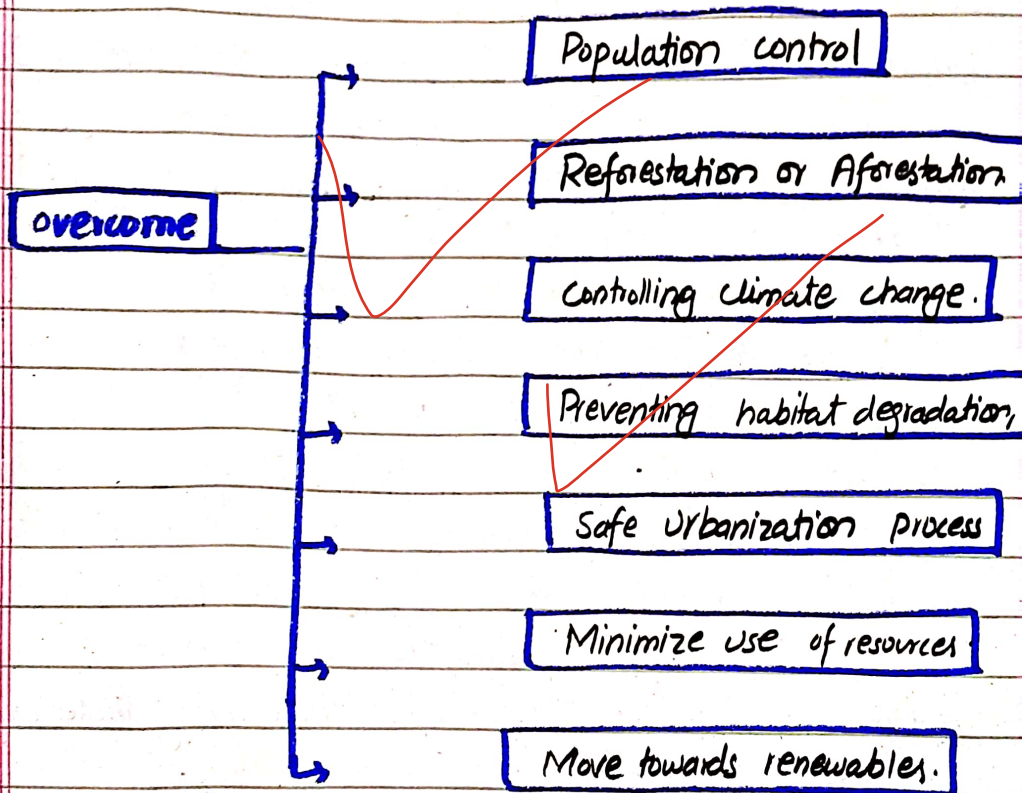 Population control
Reforestation or Aforestation.
overcome
controlling climate change.
Preventing habitat degradation,
Safe urbanization process
Minimize use of resources.
Move towards renewables.